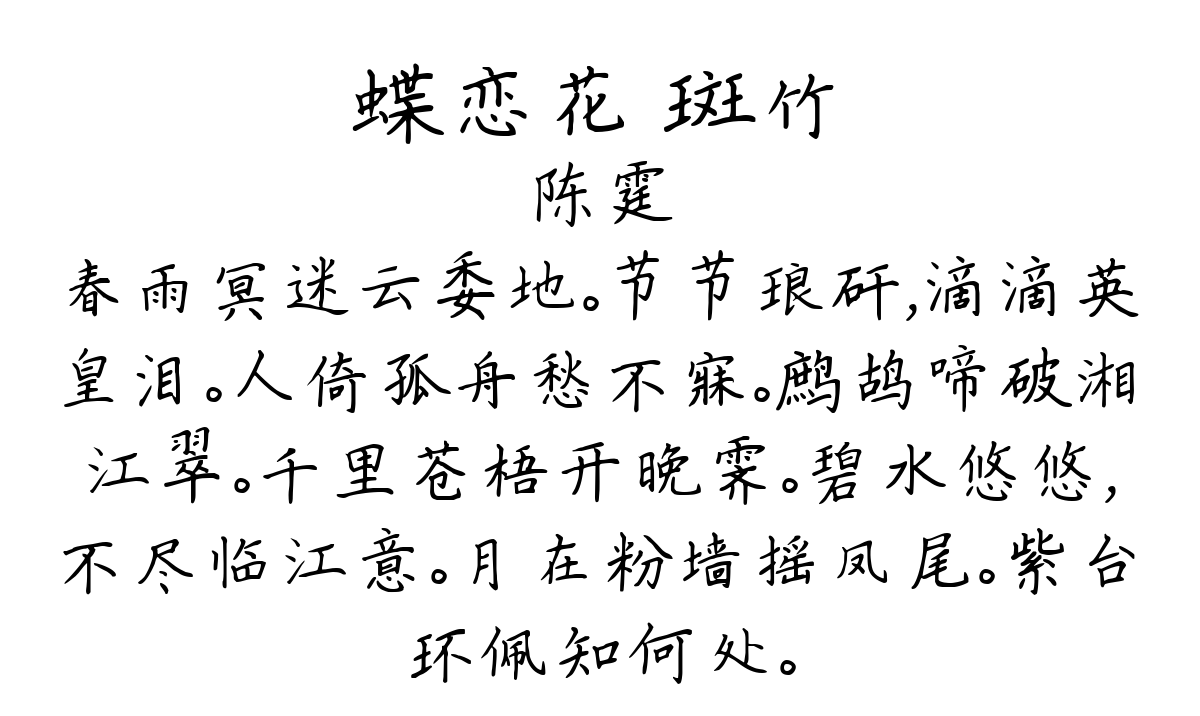 蝶恋花 斑竹
陈霆
春雨冥迷云委地。节节琅玕,滴滴英
皇泪。人倚孤舟愁不寐。鹧鸪啼破湘
江翠。千里苍梧开晚霁。碧水悠悠,
不尽临江意。月在粉墙摇凤尾。紫台
环佩知何处。